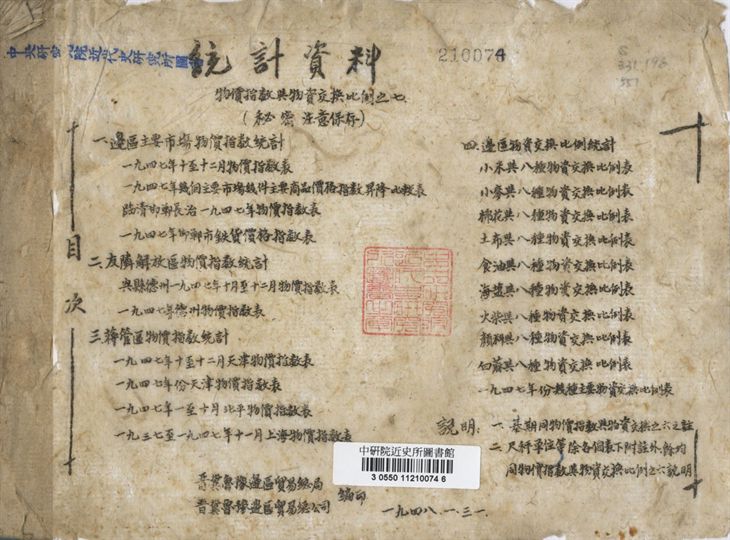 中央研究院近代史研究所圖
統計資料
210074
S
331.196
551
物價指數與物資交換比例之七
(秘密 注意保存)
目次
一. 邊區主要市場物價指數統計
一九四七年十至十二月物價指數表
一九四七年幾個主要市場幾件主要商品價格指數昇降比較表
臨清邯鄲長治一九四七年物價指數表
一九四七年邯鄲市鉄貨價格指數表
二. 友隣解放區物價指數統計
興縣德州一九四七年十月至十二月物價指數表
一九四七年德州物價指數表
三. 蔣管區物價指數統計
一九四七年十至十二月天津物價指數表
一九四七年份天津物價指數表
一九四七年一至十月北平物價指數表
一九三七至一九四七年十一月上海物價指數表
四. 邊區物資交換比例統計
小米與八種物資交換比例表
小麥與八種物資交換比例表
棉花與八種物資交換比例表
土布與八種物資交換比例表
食油與八種物資交換比例表
海鹽與八種物資交換比例表
火柴與八種物資交換比例表
顏料與八種物資交換比例表
與八種物資交換比例表
一九四七年份幾種主要物資交換比例表
說明: 一. 基期同物價指數與物資交換之六之註
二. 尺秤單位等除各個表下附註外餘均
同物價指數與物資交換比例之六說明
中研院近史所圖書館
3 0550 11210074 6
晋冀魯豫邊區貿易總局
晋冀魯豫邊區貿易總公司
編印
一九四八.一.三一.